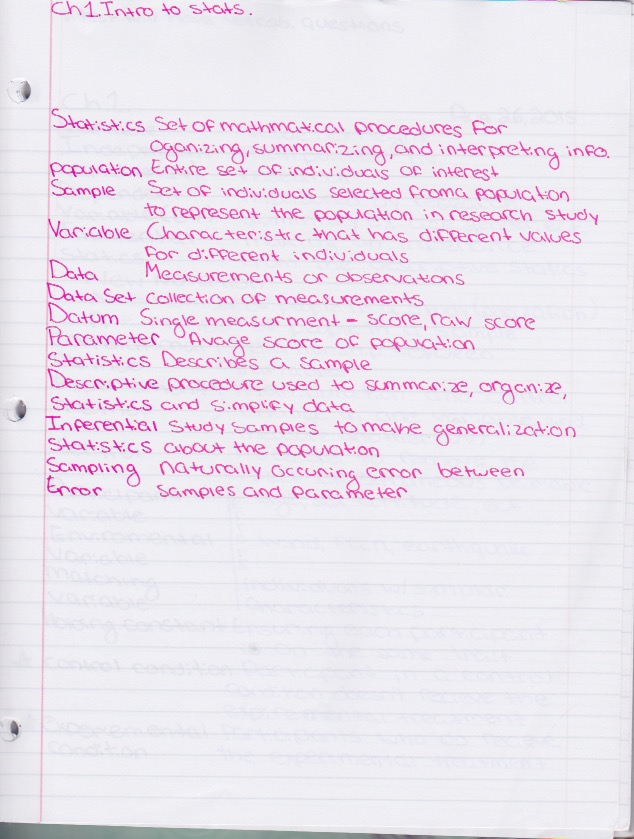 Ch 1. Intro to stats.
Statistics Set of mathmatical procedures for
oganizing, summarizing, and interpreting info.
population Entire set of individuals of interest
Sample Set of individuals selected from a population
to represent the population in research study
Variable Characteristic that has different values
for different individuals
Data Measurements or observations
Data Set collection of measurements
Datum Single measurment - score, raw score
Parameter Avage score of population
Statistics Describes a sample
Descriptive procedure used to summarize, organize,
Statistics and simplify data
Inferential Study samples to make generalization
Statistics about the population
Sampling naturally occuring error between
Error samples and parameter